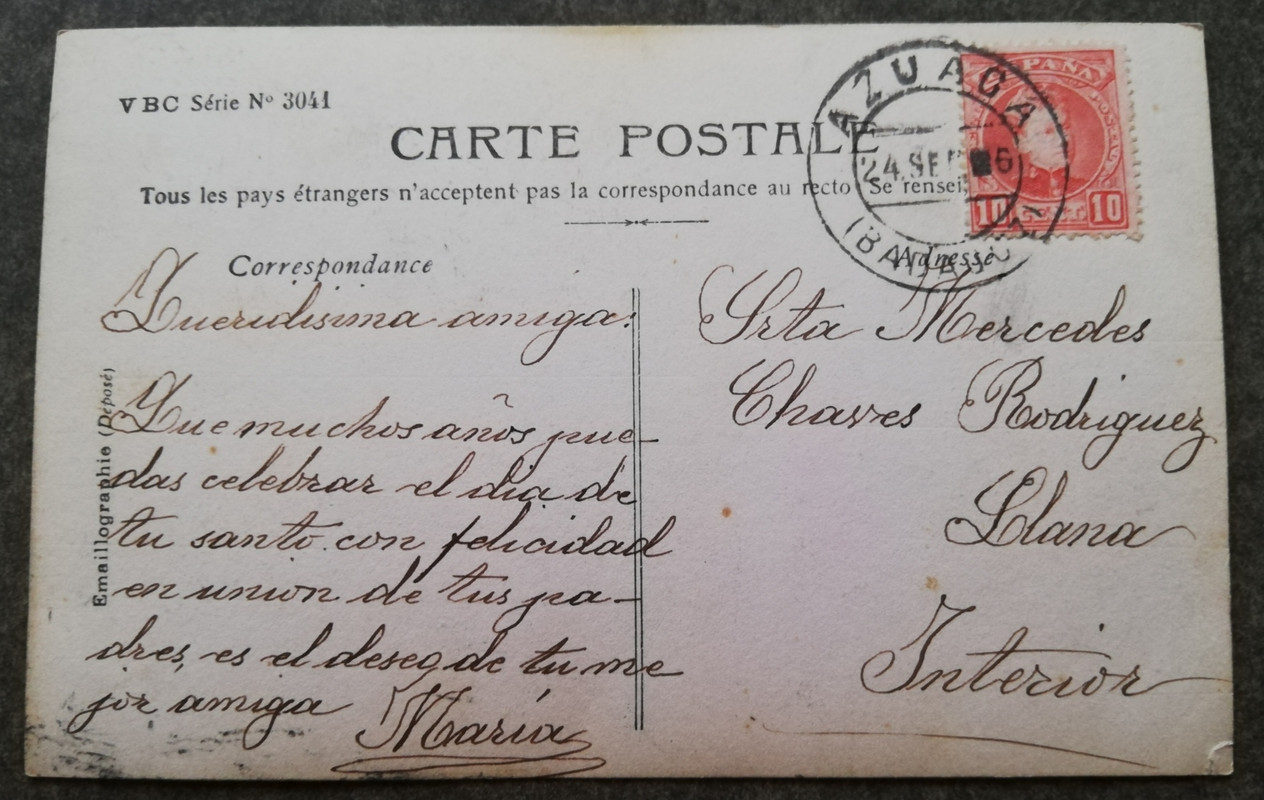 VBC Série Nº 3041
CARTE POSTALE
Tous les pays étrangers n'acceptent pas la correspondance au recto Se rensei
Correspondance
Adresse
Emaillographie (Déposé)
ESPAÑA
10 CENT. 10
AZUAGA
24 SEP 6
(BADAJOZ)
Queridisima amiga:
Que muchos años pue-
das celebrar el dia de
tu santo con felicidad
en union de tus pa-
dres, es el deseo de tu me
jor amiga
María
Srta Mercedes
Chaves Rodriguez
Llana
Interior